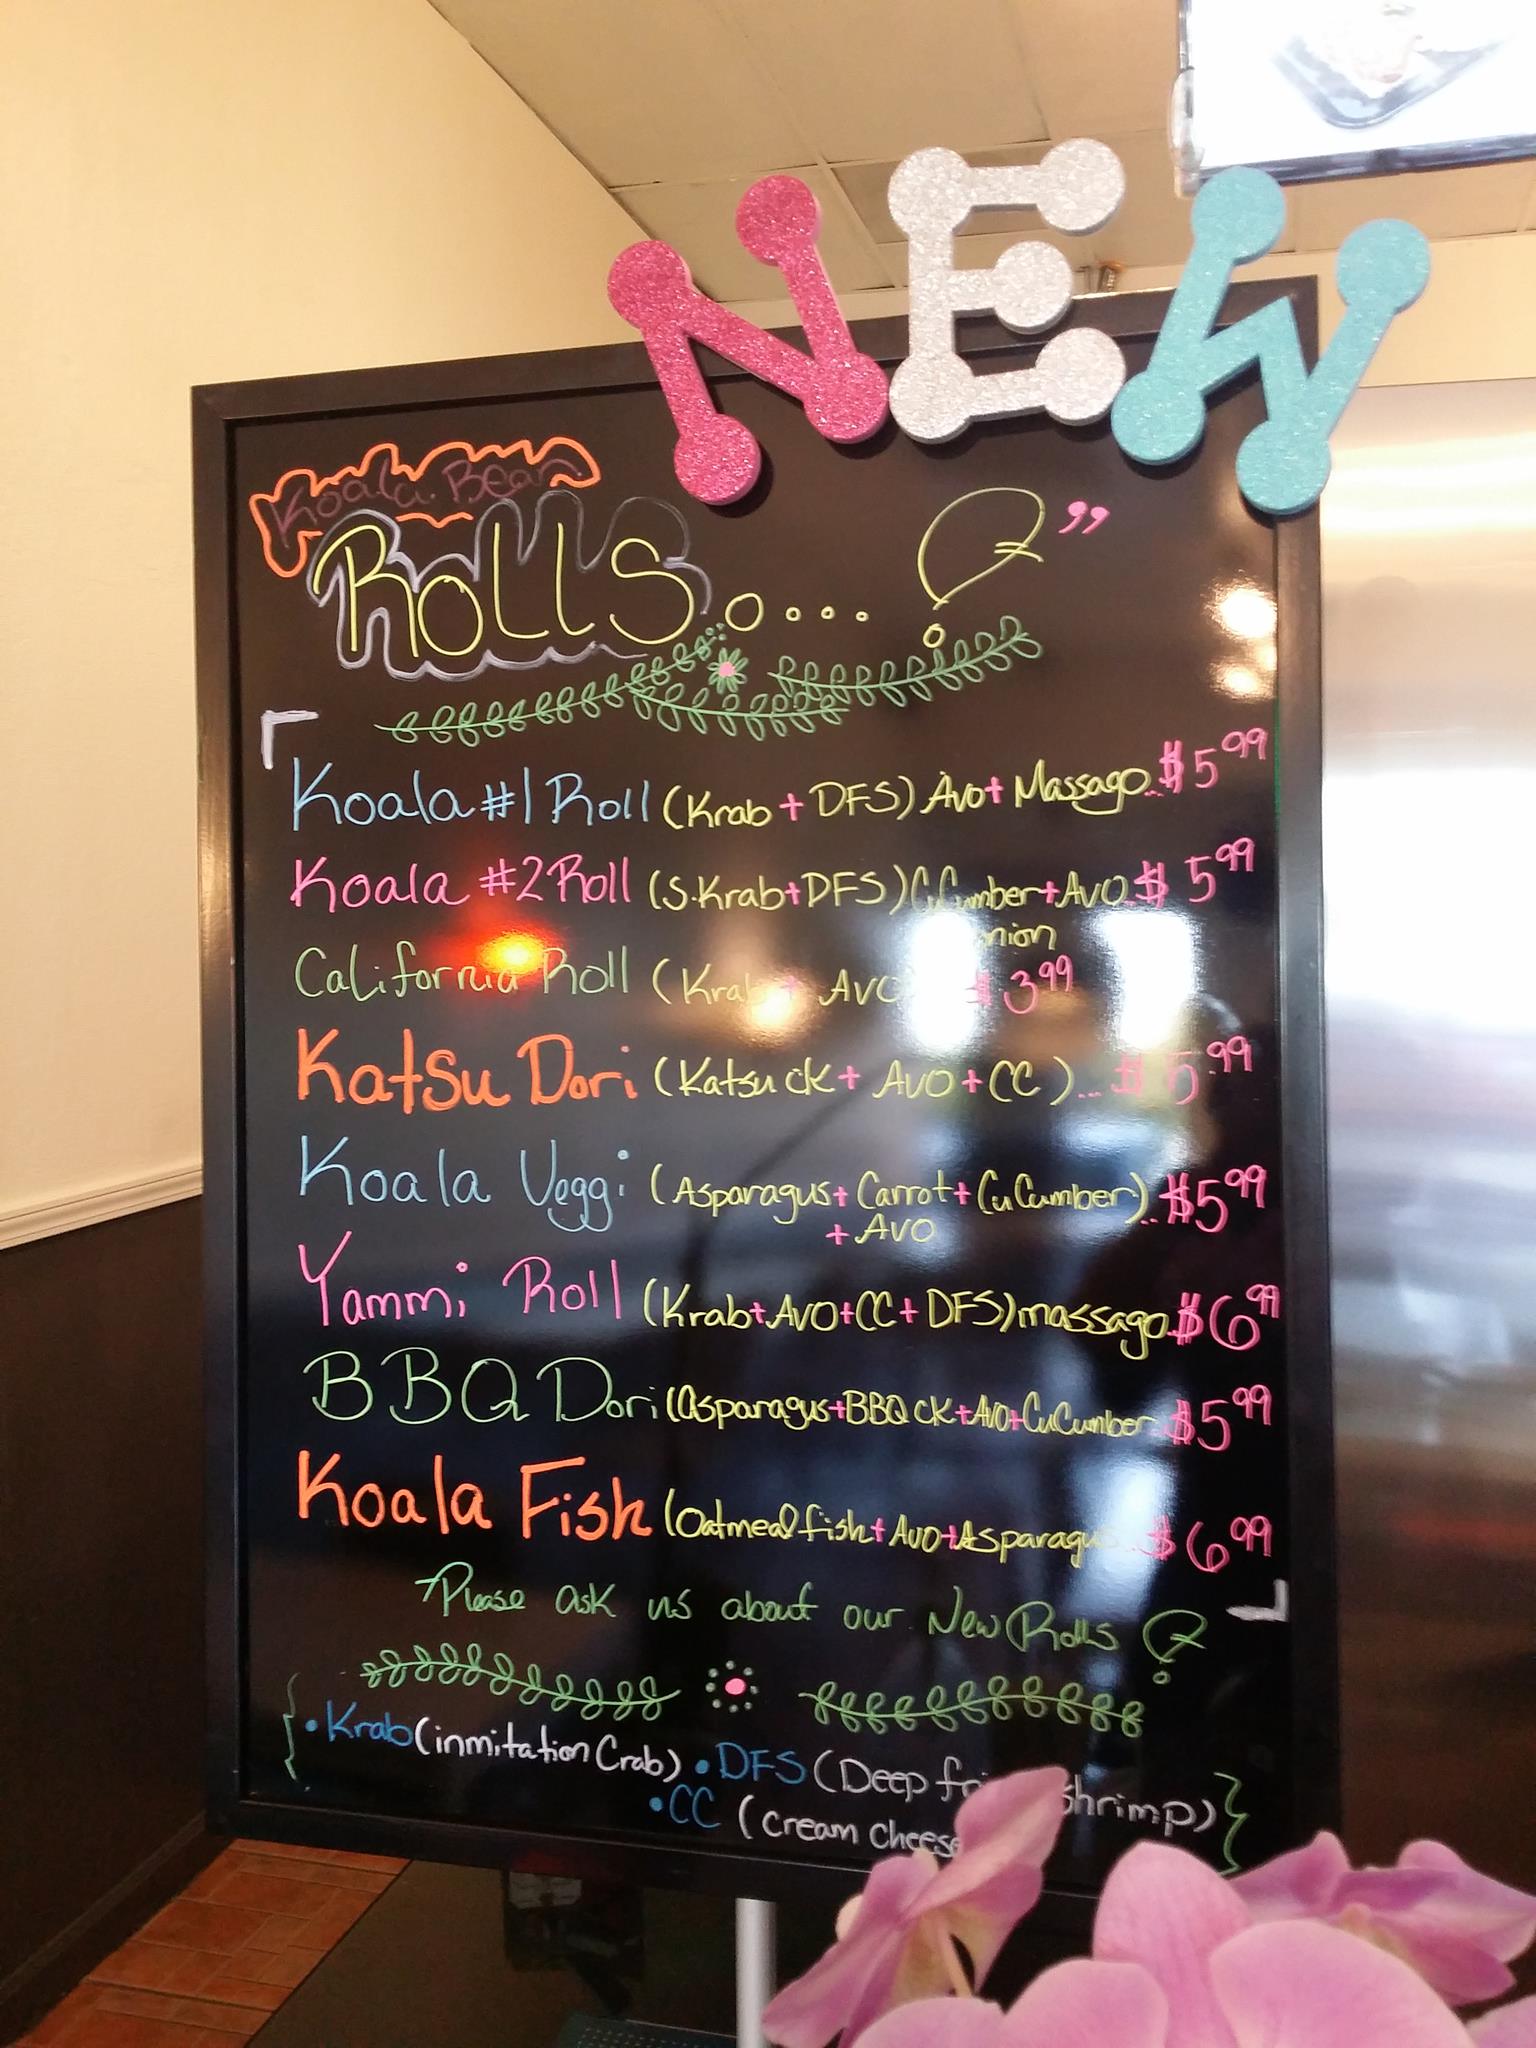 NEW
Koala Bear
Rolls....? ,,
Koala #1 Roll (Krab + DFS) Avo + Massago..$5.99
Koala #2 Roll (S.Krab + DFS) CuCumber + Avo..$5.99
California Roll (Krab + Avo $3.99
Katsu Dori (Katsu ck + Avo + CC)...$5.99
Koala Veggi (Asparagus + Carrot + CuCumber)..$5.99
+ Avo
Yammi Roll (Krab + Avo + CC + DFS) massago.$6.99
BBQ Dori (Asparagus + BBQ ck + Avo + CuCumber..$5.99
Koala Fish (Oatmeal fish + Avo + Asparagus..$6.99
Please ask us about our New Rolls ?
{ • Krab (inmitation Crab) • DFS (Deep Shrimp) }
• CC (cream cheese